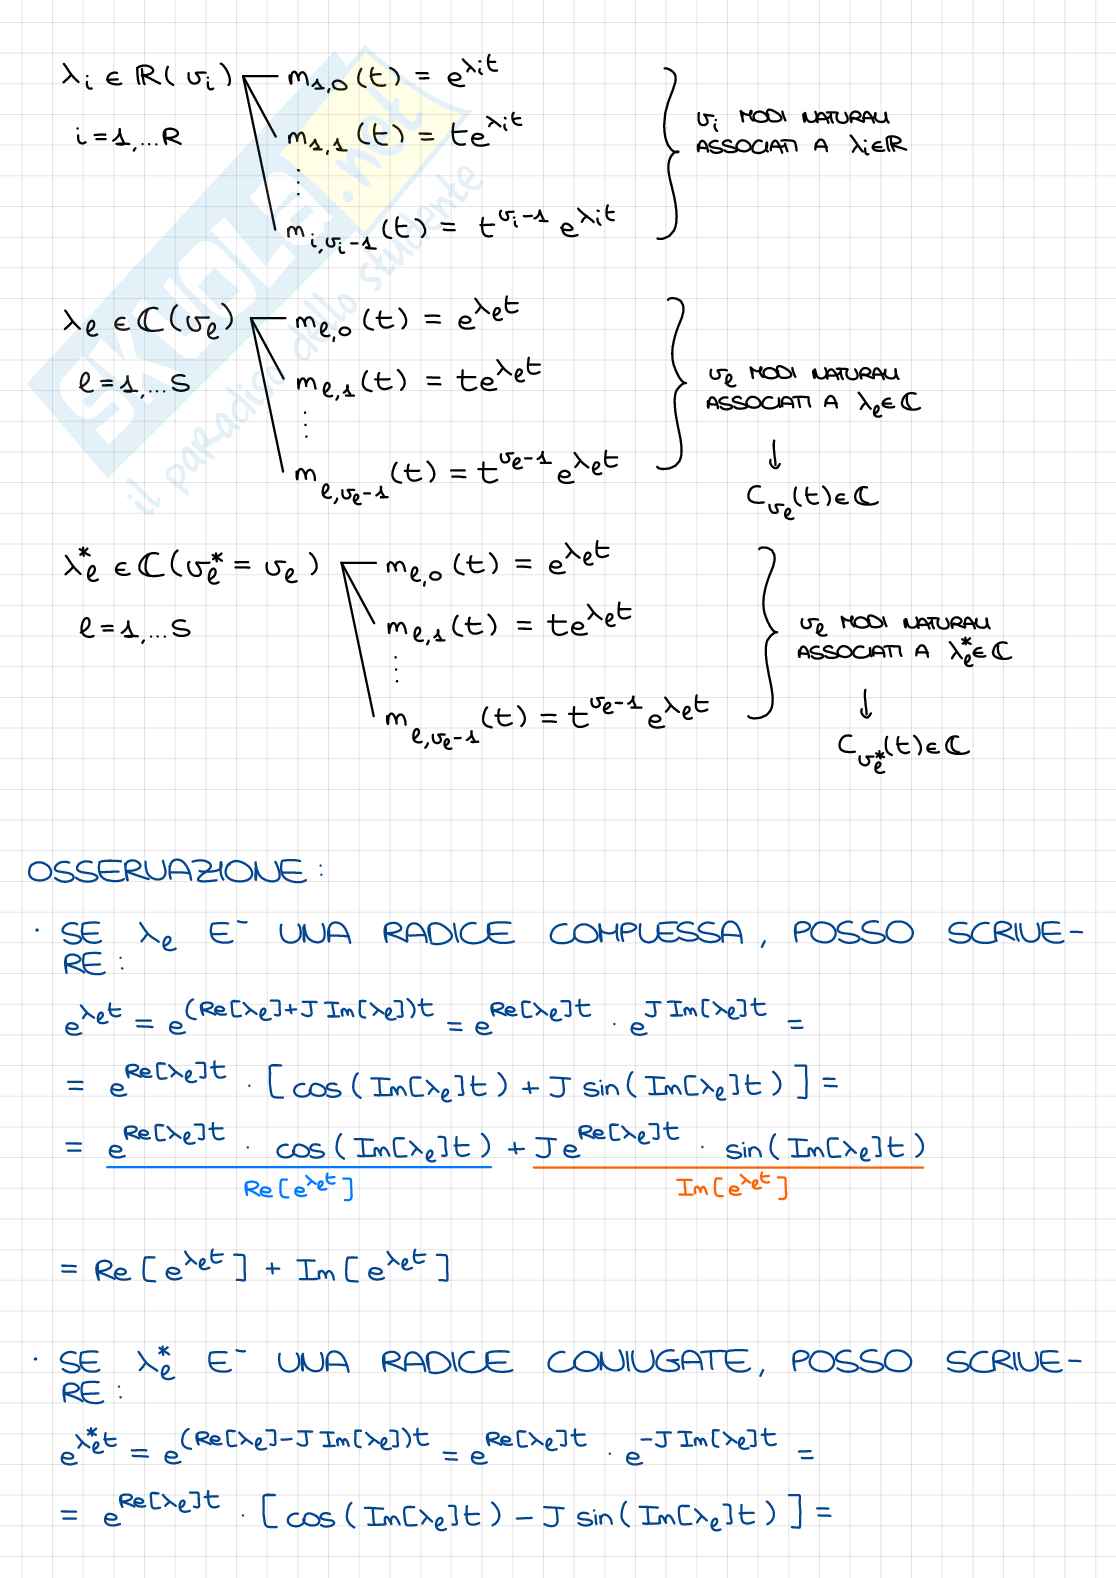 λᵢ ∈ ℝ(νᵢ) m₁,₀(t) = e^{λᵢt}
i = 1,...R m₁,₁(t) = te^{λᵢt}
⋮
m_{i,νᵢ-1}(t) = t^{νᵢ-1} e^{λᵢt}
νᵢ MODI NATURALI
ASSOCIATI A λᵢ∈ℝ
λ_e ∈ ℂ(ν_e) m_{e,0}(t) = e^{λ_e t}
e = 1,...S m_{e,1}(t) = te^{λ_e t}
⋮
m_{e,ν_e-1}(t) = t^{ν_e-1} e^{λ_e t}
ν_e MODI NATURALI
ASSOCIATI A λ_e∈ℂ
↓
C_{ν_e}(t)∈ℂ
λ_e^* ∈ ℂ(ν_e^* = ν_e) m_{e,0}(t) = e^{λ_e t}
e = 1,...S m_{e,1}(t) = te^{λ_e t}
⋮
m_{e,ν_e-1}(t) = t^{ν_e-1} e^{λ_e t}
ν_e MODI NATURALI
ASSOCIATI A λ_e^*∈ℂ
↓
C_{ν_e^*}(t)∈ℂ
OSSERVAZIONE:
· SE λ_e E⁻ UNA RADICE COMPLESSA, POSSO SCRIVE-
RE:
e^{λ_e t} = e^{(Re[λ_e]+J Im[λ_e])t} = e^{Re[λ_e]t} · e^{J Im[λ_e]t} =
= e^{Re[λ_e]t} · [cos(Im[λ_e]t) + J sin(Im[λ_e]t)] =
= e^{Re[λ_e]t} · cos(Im[λ_e]t) + Je^{Re[λ_e]t} · sin(Im[λ_e]t)
Re[e^{λ_e t}] Im[e^{λ_e t}]
= Re[e^{λ_e t}] + Im[e^{λ_e t}]
· SE λ_e^* E⁻ UNA RADICE CONIUGATE, POSSO SCRIVE-
RE:
e^{λ_e^* t} = e^{(Re[λ_e]-J Im[λ_e])t} = e^{Re[λ_e]t} · e^{-J Im[λ_e]t} =
= e^{Re[λ_e]t} · [cos(Im[λ_e]t) - J sin(Im[λ_e]t)] =
SKUOLA.net
il paradiso dello studente